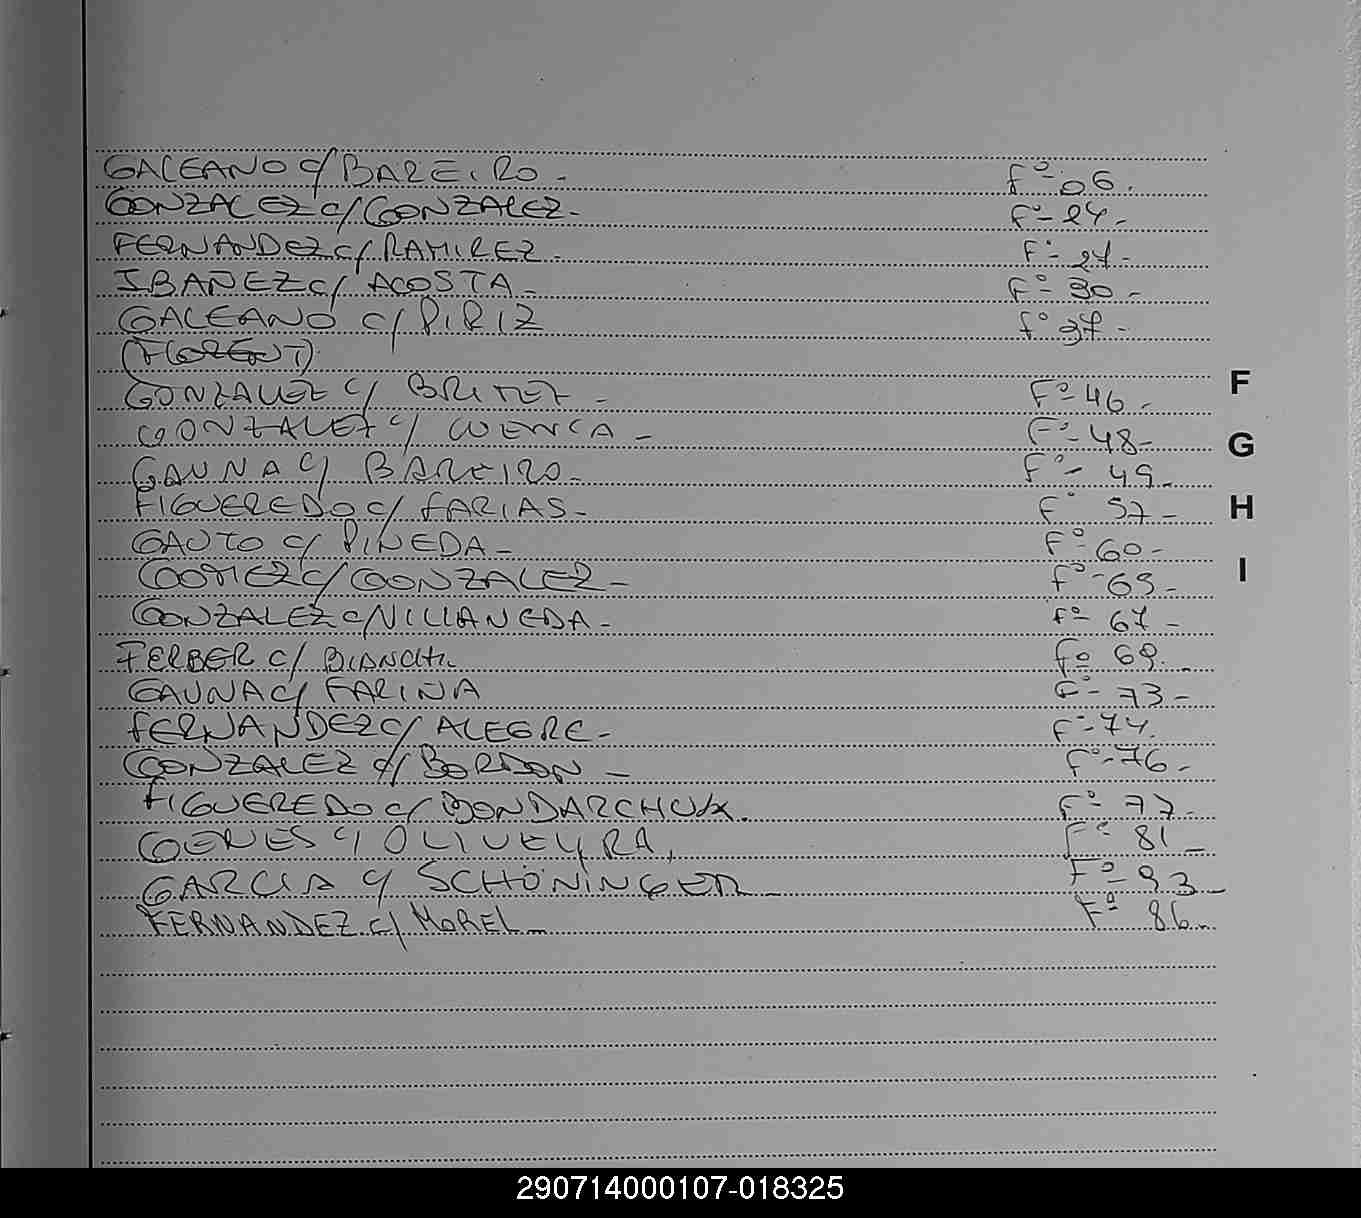 GALEANO c/ BAREIRO. Fº 06.
GONZALEZ c/ GONZALEZ. Fº 24.
FERNANDEZ c/ RAMIREZ. Fº 27.
IBAÑEZ c/ ACOSTA. Fº 30.
GALEANO c/ PIRIZ Fº 37.
GONZALEZ c/ BRITEZ - Fº 46. F
GONZALEZ c/ CUENCA - Fº 48 G
GAUNA c/ BAREIRO. Fº 49
FIGUEREDO c/ FARIAS. Fº 57 H
GAUTO c/ PINEDA - Fº 60
GOMEZ c/ GONZALEZ - Fº I
GONZALEZ c/ VILLANEDA - Fº 67
FERBER c/ Fº 69.
GAUNA c/ FARIÑA Fº 73
FERNANDEZ c/ ALEGRE - Fº 74.
GONZALEZ c/ BORDON - Fº 76
FIGUEREDO c/ BONDARCHUK. Fº 77
GENES c/ OLIVEYRA, Fº 81
GARCIA c/ SCHÖNINGER Fº 93
FERNANDEZ c/ MOREL Fº 86
290714000107-018325